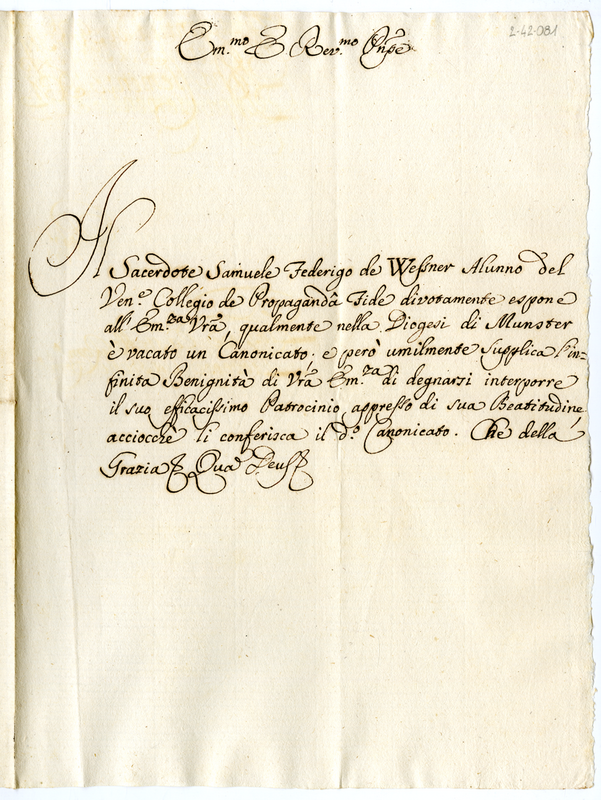 Em.mo E Rev.mo Pnpe
2-42-081
Il Sacerdote Samuele Federigo de Weſsner Alunno del
Ven.e Collegio de Propaganda Fide divotamente espone
all' Em.za Vrã, qualmente nella Diogesi di Munster
è vacato un Canonicato; e però umilmente supplica l'in=
finita Benignità di Vrã Em.za di degnarsi interporre
il suo efficacissimo Patrocinio appreſso di sua Beatitudine,
acciocchè li conferisca il d.o Canonicato. Che della
Grazia &. Qua Deus &.